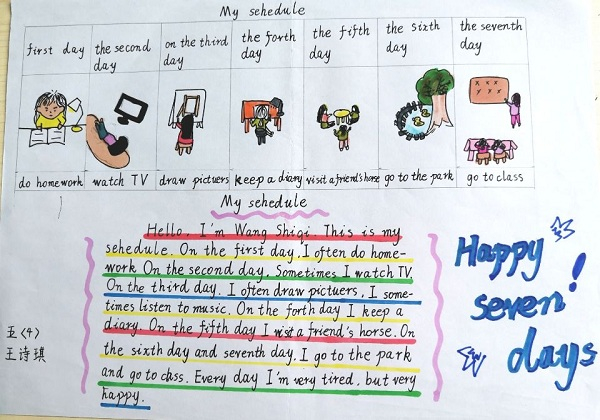 My sehedule
first day
the second day
on the third day
the forth day
the fifth day
the sixth day
the seventh day
do homework
watch TV
draw pictuers
keep a diary
visit a friend's horse
go to the park
go to class
My schedule
Hello, I'm Wang Shiqi. This is my
sehedule. On the first day, I often do home-
work. On the second day, Sometimes I watch TV.
On the third day. I often draw pictuers. I some-
times listen to music. On the forth day I keep a
diary. On the fifth day I visit a friend's horse. On
the sixth day and seventh day, I go to the park
and go to class. Every day I'm very tired, but very
happy.
五(4)
王诗琪
Happy
seven!
days